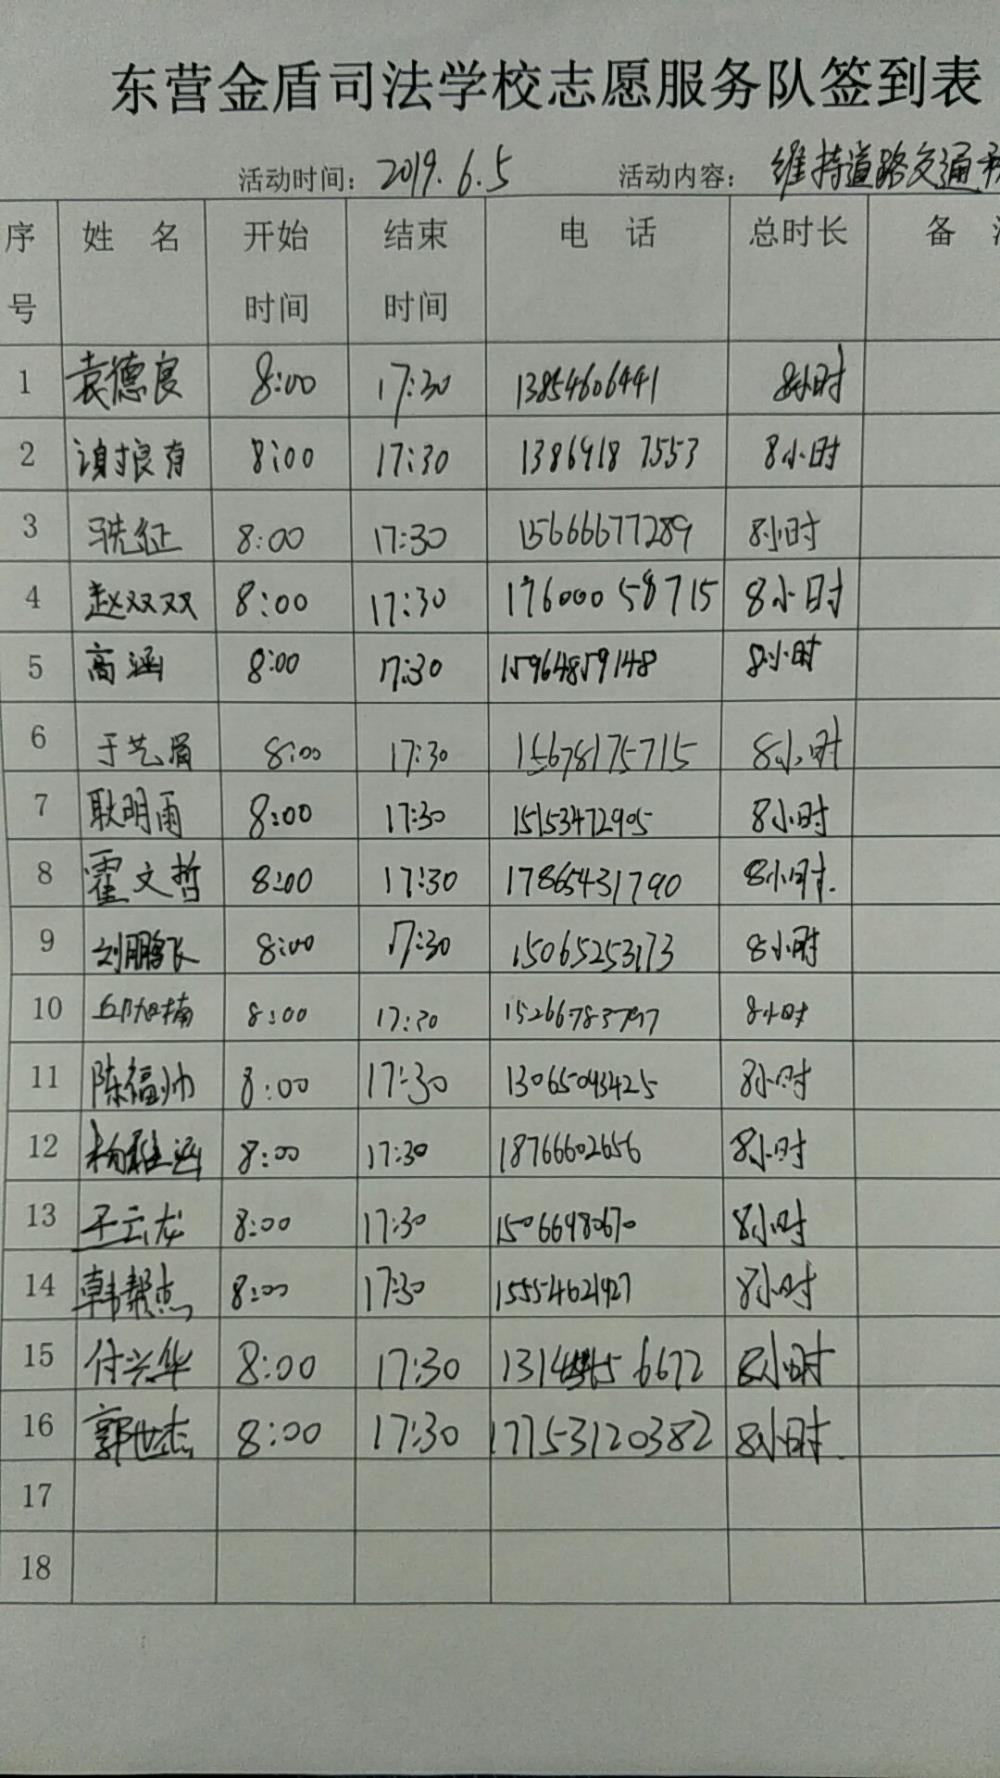 东营金盾司法学校志愿服务队签到表
活动时间：2019.6.5 活动内容：维持道路交通
序号 姓名 开始时间 结束时间 电话 总时长 备
1 袁德良 8:00 17:30 13854606441 8小时
2 8:00 17:30 1386918 7553 8小时
3 8:00 17:30 15666677289 8小时
4 赵双双 8:00 17:30 176000 58715 8小时
5 高涵 8:00 17:30 15964859148 8小时
6 于艺眉 8:00 17:30 15678175715 8小时
7 耿明雨 8:00 17:30 15153472905 8小时
8 霍文哲 8:00 17:30 17865431790 8小时.
9 刘鹏飞 8:00 17:30 15065253173 8小时
10 8:00 17:30 8小时
11 陈福帅 8:00 17:30 13065043425 8小时
12 杨雅涵 8:00 17:30 18766602656 8小时
13 云龙 8:00 17:30 15066498070 8小时
14 韩帮杰 8:00 17:30 15554621927 8小时
15 付兴华 8:00 17:30 6672 8小时
16 郭世杰 8:00 17:30 17753120382 8小时.
17
18